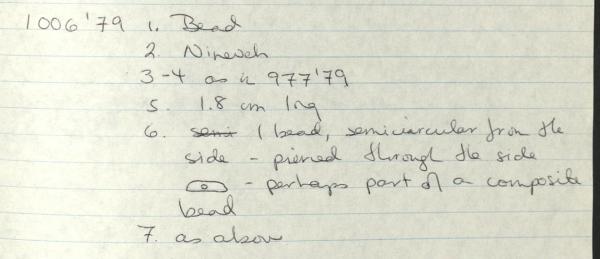 1006'79 1. Bead
2. Nineveh
3-4 as in 977'79
5. 1.8 cm lng
6. semi 1 bead, semicircular from the
side - pierced through the side
- perhaps part of a composite
bead
7. as above